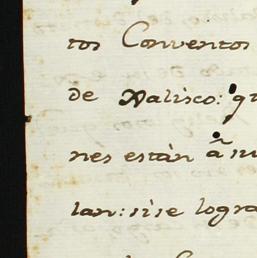 tos Conventos
de Xalisco: qu
nes están â nu
lan: si se logra